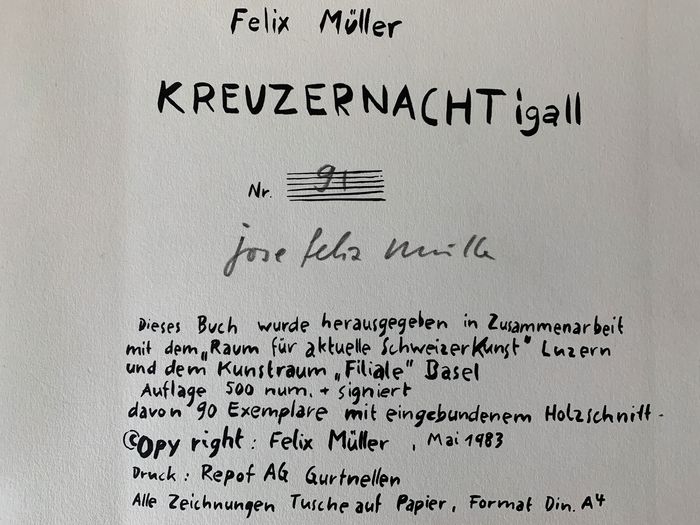 Felix Müller
KREUZERNACHTigall
Nr. 91
jose felix müller
Dieses Buch wurde herausgegeben in Zusammenarbeit
mit dem „Raum für aktuelle Schweizerkunst" Luzern
und dem Kunstraum „Filiale" Basel
Auflage 500 num. + signiert
davon 90 Exemplare mit eingebundenem Holzschnitt.
©opy right : Felix Müller , Mai 1983
Druck : Repof AG Gurtnellen
Alle Zeichnungen Tusche auf Papier, Format Din. A4